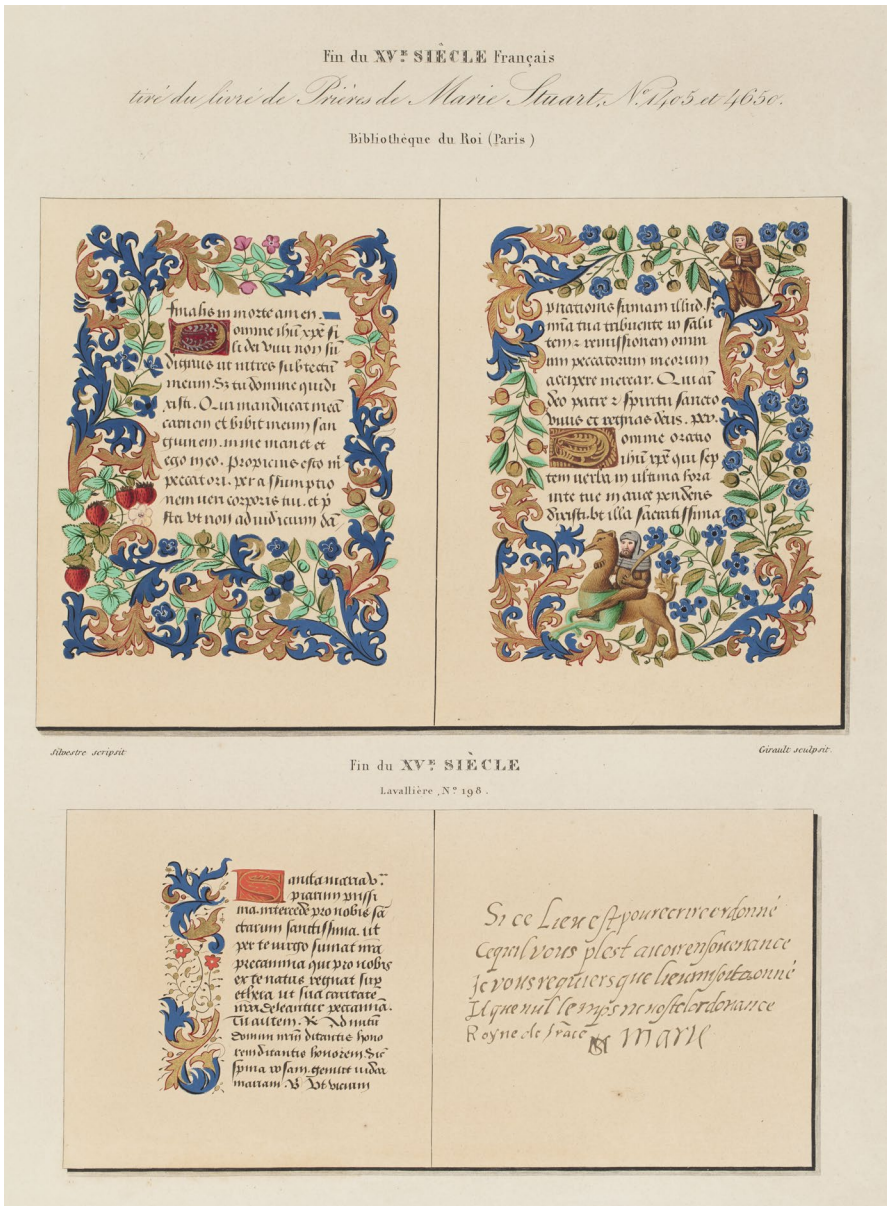 Fin du XVᵉ SIÈCLE Français
tiré du livre de Prières de Marie Stuart, Nº 1405 et 4650.
Bibliothéque du Roi (Paris)
finalis in morte amen.
omine ihū xp̄e fi
li dei vivi non sū
dignus ut intres sub tectū
meum. Si tu domine qui di
xisti. Qui manducat meā
carnem et bibit meum san
guinem. in me manet et
ego in eo. propicius esto m̄
peccatori. per assumptio
nem veri corporis tui. et p̄
sta vt non ad iudicium dā
ptationis sumam illud. s;
mīa tua tribuente in salu
tem z remissionem omni
um peccatorum meorum
accipere merear. Qui cū
deo patre z spiritu sancto
viuis et regnas deus. per.
omine oratio
ihū xp̄e qui sep
tem verba in ultima hora
vite tue in cruce pendens
dixisti. vt illa sacratissima
Silvestre scripsit
Girault sculpsit.
Fin du XVᵉ SIÈCLE
Lavallière, Nº 198.
Sancta maria v̄
piarum piissi
ma. intercede pro nobis sā
ctarum sanctissima. ut
per te virgo sumat nrā
precamina qui pro nobis
ex te natus regnat sup
ethera ut sua caritate
nrā deleantur peccamīa.
Tu autem. R. Ad nutū
domini nrm̄ ditantis hono
rem ditantis honorem. Sic
spina rosam. genuit iudea
mariam. V. Vt vicium
Si ce Lieu est pour ecrire ordonné
Ce quil vous plest auoir en souuenance
Je vous requiers que lieu my soit donné
Et que nul temps ne noste lordonance
Royne de france Marie